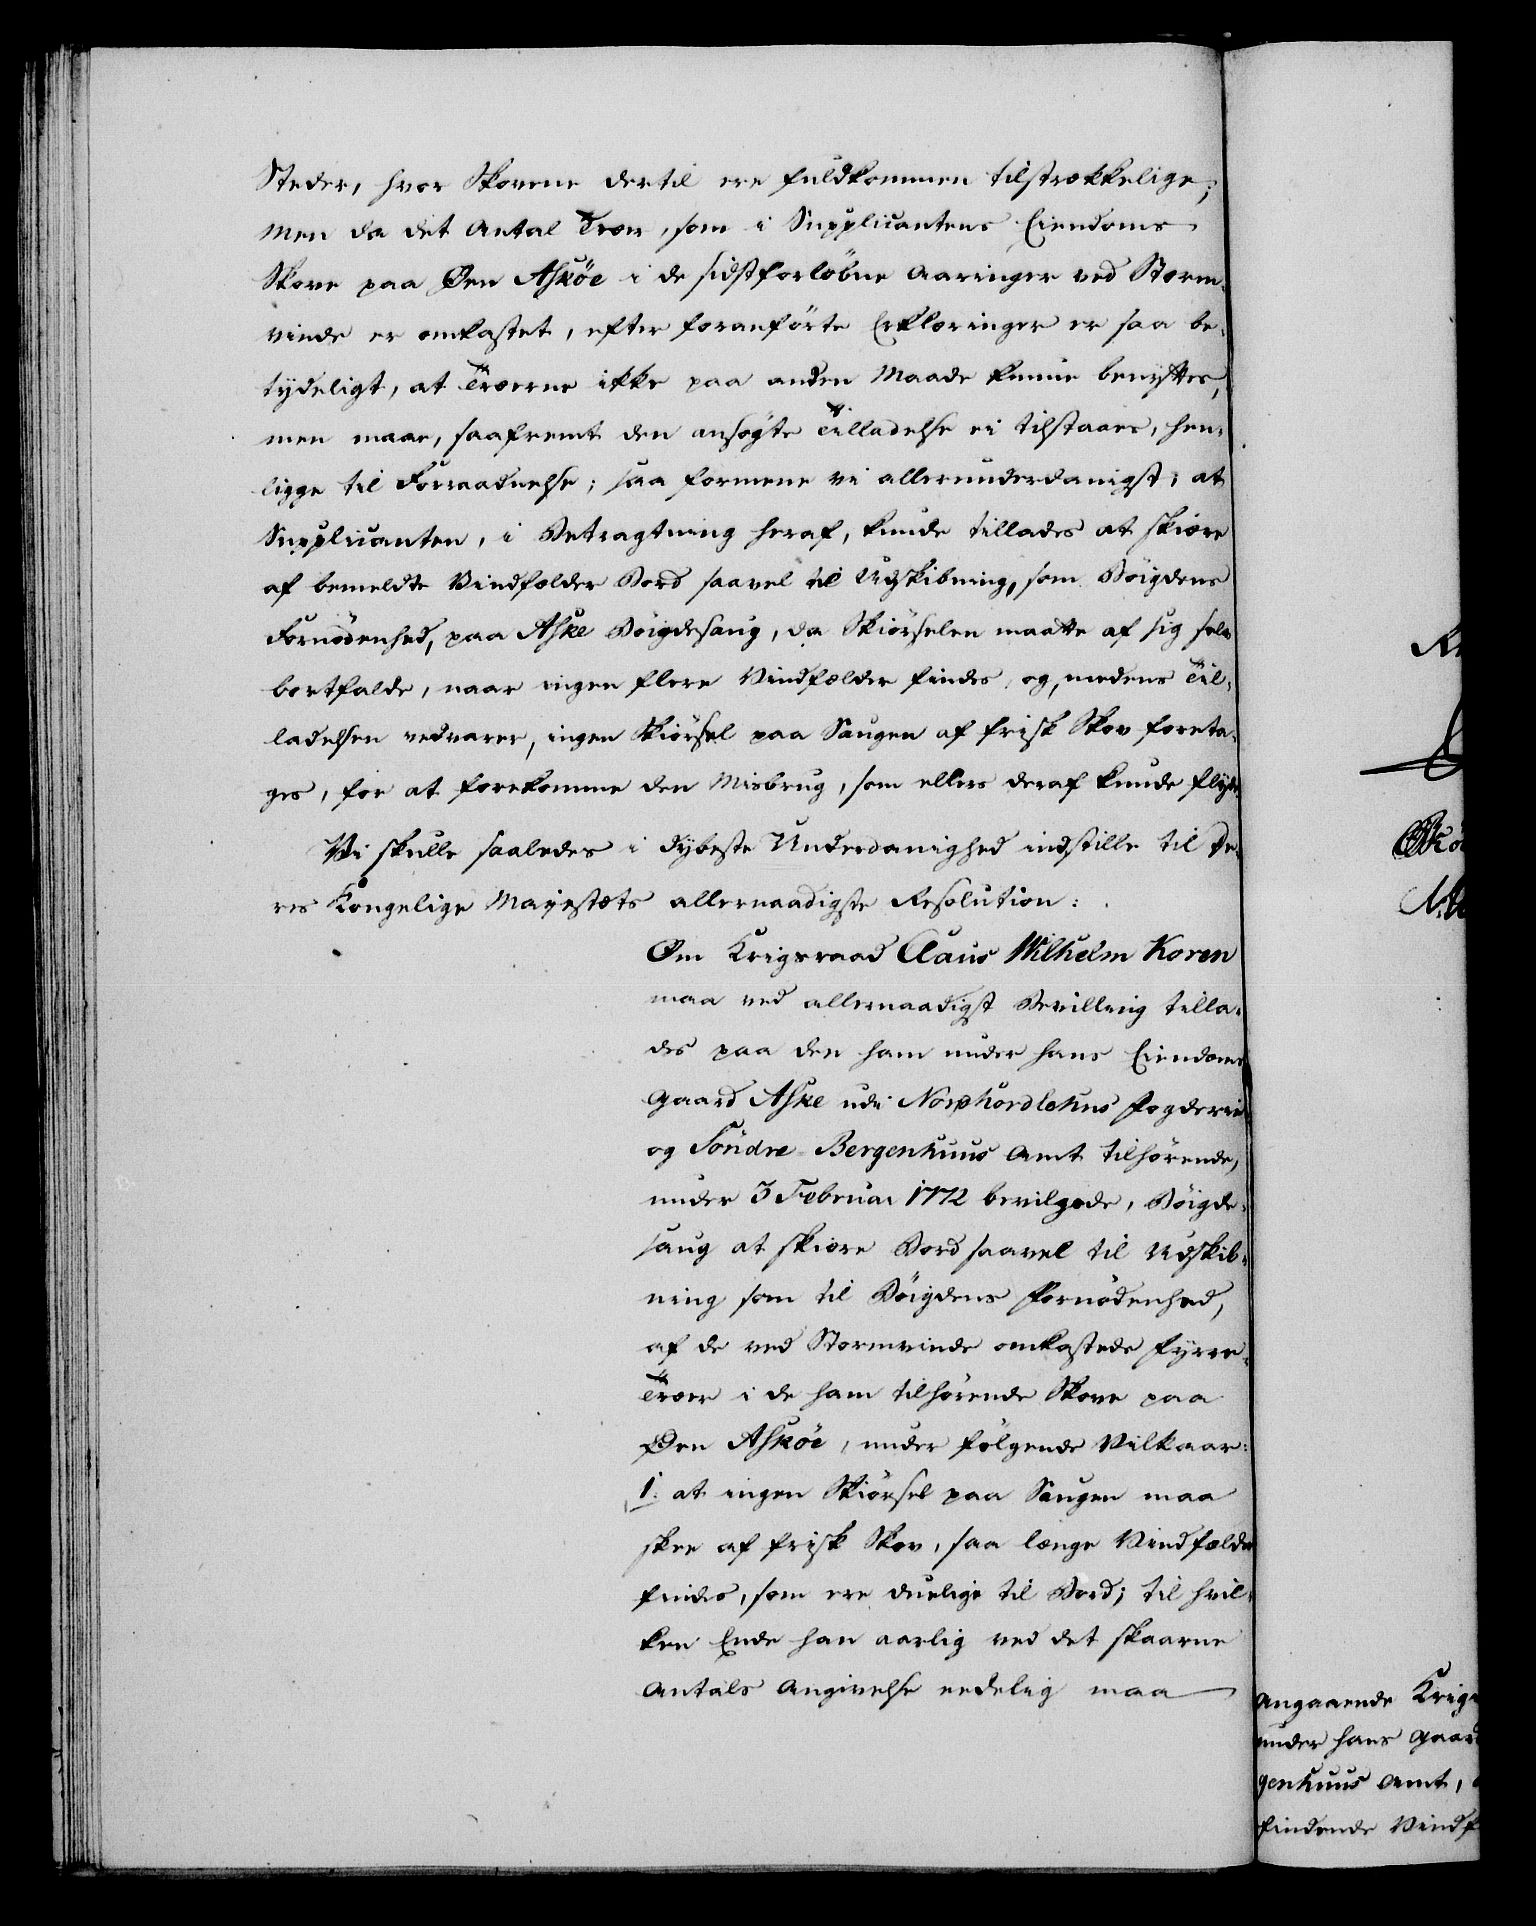 Steder, hvor Skovene dertil ere fuldkommen tilstrækkelige;
Men da det Antal Træer, som i Supplicantens Eiendoms
Skove paa Øen Askøe i de sidstforløbne Aaringer ved Storm-
vinde er omkastet, efter foranførte Erklæringer er saa be-
tydeligt, at Træerne ikke paa anden Maade kunne benyttes,
men maae, saafremt den ansøgte Tilladelse ei tilstaaes, hen-
ligge til Forraadnelse; saa formene vi allerunderdanigst, at
Supplicanten, i Betragtning heraf, kunde tillades at skiære
af bemeldte Vindfælder Bord saavel til Udskibning, som Bøigdens
Fornødenhed, paa Aske Bøigdesaug, da Skiørselen maatte af sig selv
bortfalde, naar ingen flere Vindfælder findes, og, medens Til-
ladelsen vedvarer, ingen Skiørsel paa Saugen af frisk Skov foreta-
ges, for at forekomme den Misbrug, som ellers deraf kunde flyde.
Vi skulle saaledes i dybeste Underdanighed indstille til De-
res Kongelige Majestæts allernaadigste Resolution:
Om Krigsraad Claus Wilhelm Koren
maa ved allernaadigst Bevilling tilla-
des paa den ham under hans Eiendoms
Gaard Aske udi Nordhordlehns Fogderie
og Søndre Bergenhuus Amt tilhørende,
under 3 Februar 1772 bevilgede, Bøigde-
saug at skiære Bord saavel til Udskib-
ning som til Bøigdens Fornødenhed,
af de ved Stormvinde omkastede Fyrre-
Træer i de ham tilhørende Skove paa
Øen Askøe, under følgende Vilkaar:
1. at ingen Skiørsel paa Saugen maa
skee af frisk Skov, saa længe Vindfælder
findes, som ere duelige til Bord; til hvil-
ken Ende han aarlig ved det skaarne
Antals Angivelse eedelig maa
Angaaende Krigs
under hans Gaard
genhuus Amt,
findende Vindf